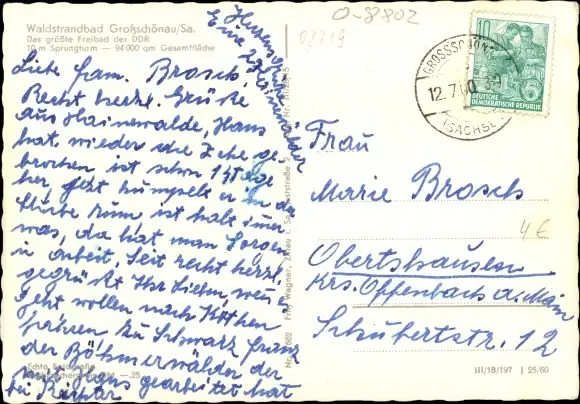 Waldstrandbad Großschönau/Sa.
Das größte Freibad der DDR
10 m Sprungturm — 94000 qm Gesamtfläche
Liebe Fam. Brosch.
Recht herzl. Grüße
aus Hainewalde, Hans
hat wieder die Zehe ge-
brochen ist schon 14 Tage
her, jetzt humpelt er in der
Stube rum ist halt immer
was, da hat man Sorgen
u. Arbeit. Seit recht herzl.
gegrüßt Ihr Lieben, wenn
geht wollen nach Köthen
fahren zu Schwarz Franz
der Böhmerwälder der
mit Hans gearbeitet hat
bei Richter
Eine Böhmerwälder
O-8802
GROSSSCHÖNAU
12.7.60
(SACHS.)
10
DEUTSCHE
DEMOKRATISCHE REPUBLIK
Frau
Marie Brosch
4 €
Obertshausen
Krs. Offenbach a. Main
Schubertstr. 12
Echte Fotografie
III/18/197 | 25/60